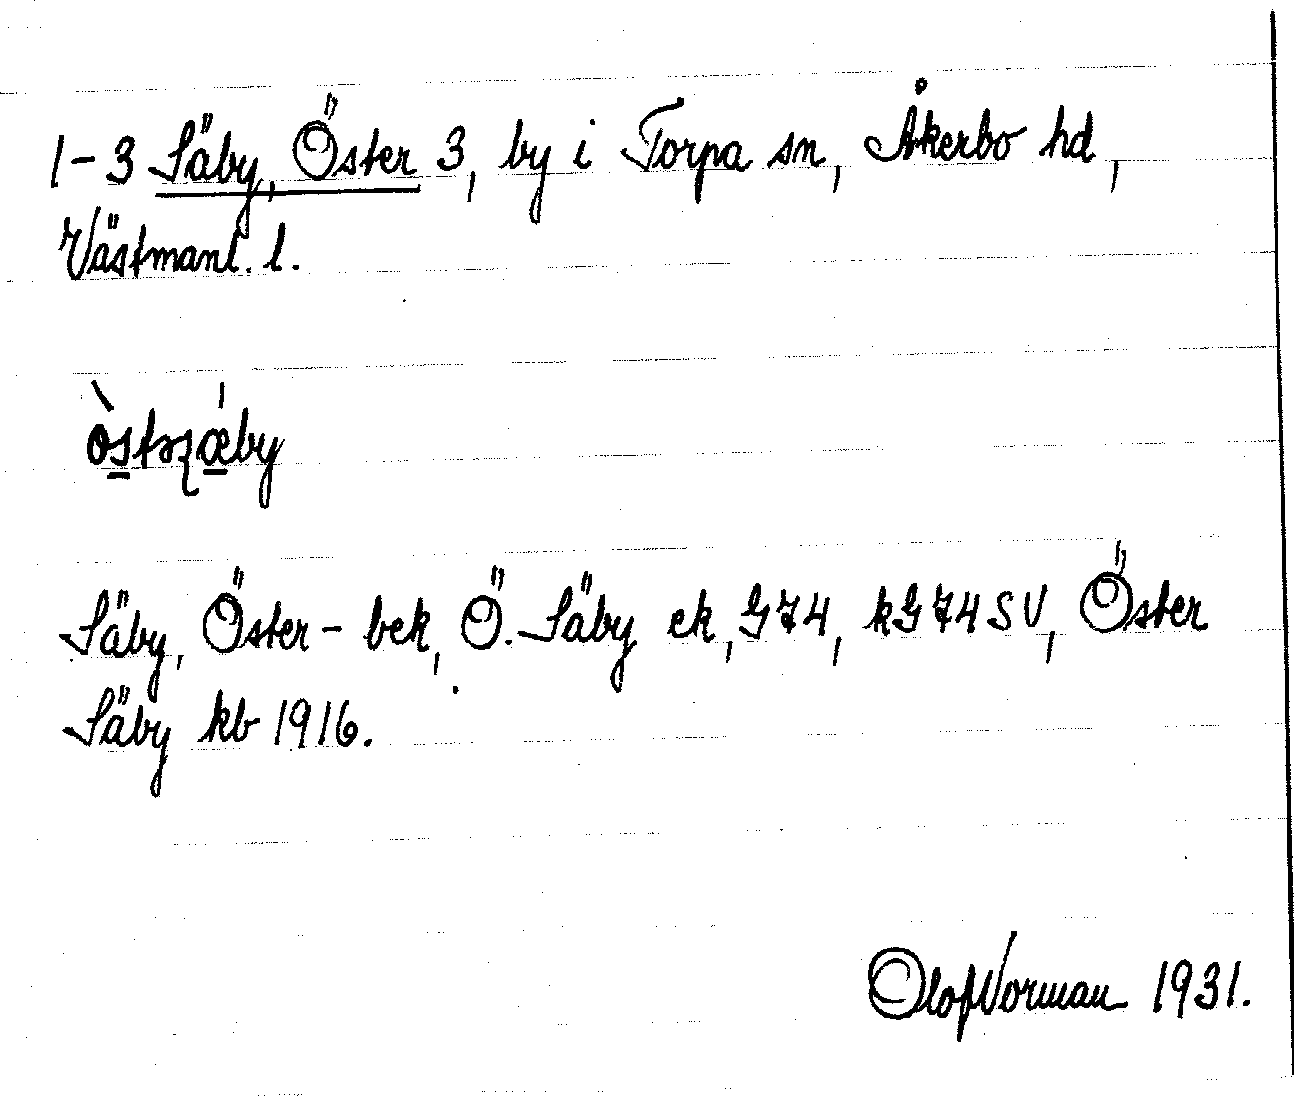 1-3 Säby, Öster 3, by i Torpa sn, Åkerbo hd,
Västmanl. l.
Säby, Öster - bek, Ö. Säby ek, G74, kG74SV, Öster
Säby kb 1916.
Olof Norman 1931.